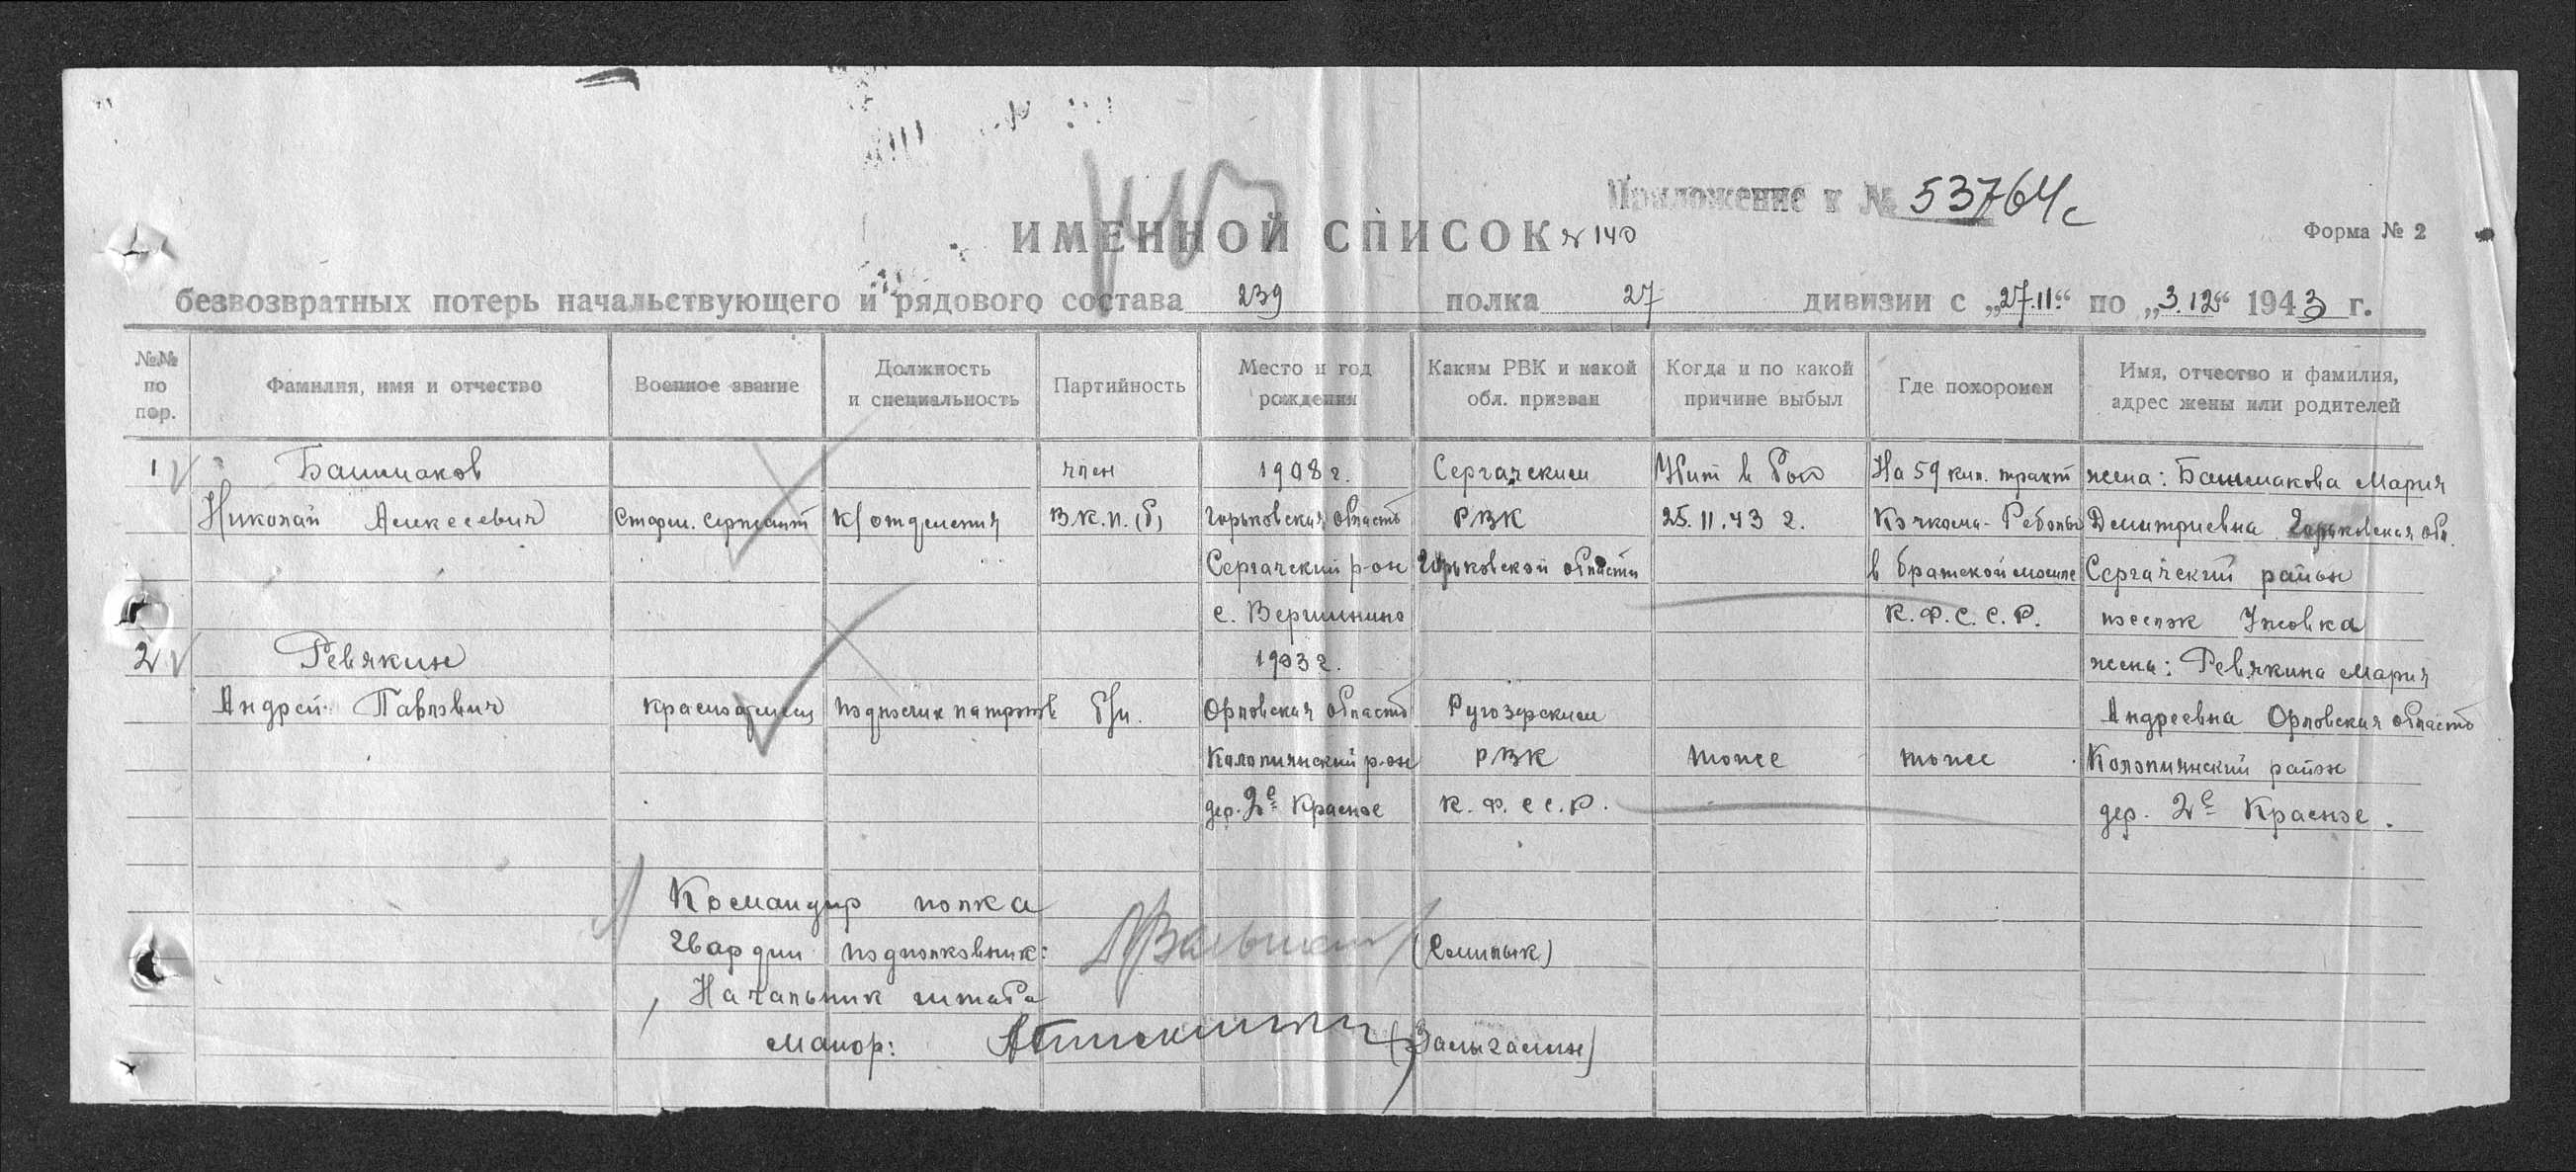 Приложение к № 53764с
ИМЕННОЙ СПИСОК № 140
Форма № 2
безвозвратных потерь начальствующего и рядового состава 239 полка 27 дивизии с „27.11.“ по „3.12“ 1943 г.
№№ по пор.
Фамилия, имя и отчество
Военное звание
Должность и специальность
Партийность
Место и год рождения
Каким РВК и какой обл. призван
Когда и по какой причине выбыл
Где похоронен
Имя, отчество и фамилия, адрес жены или родителей
1 Башмаков член 1908 г. Сергачским Убит в бою На 59 клм. тракт жена: Башмакова Мария
Николай Алексеевич Старш. сержант к/отделения В.К.П.(б) Горьковская область РВК 25.11.43 г. Кочкома-Реболы Дмитриевна Горьковская обл.
Сергачский р-он Горьковской области в братской могиле Сергачский район
с. Вершинино К.Ф.С.С.Р. поселок Ужовка
2 Ревякин 1903 г. жена: Ревякина Мария
Андрей Павлович красноармеец подносчик патронов б/п. Орловская область Ругозерским Андреевна Орловская область
Колпнянский р-он РВК тоже тоже Колпнянский район
дер. 2е Красное К.Ф.С.С.Р. дер. 2е Красное.
Командир полка
гвардии подполковник: (Солипык)
Начальник штаба
майор: (Замыгамин)